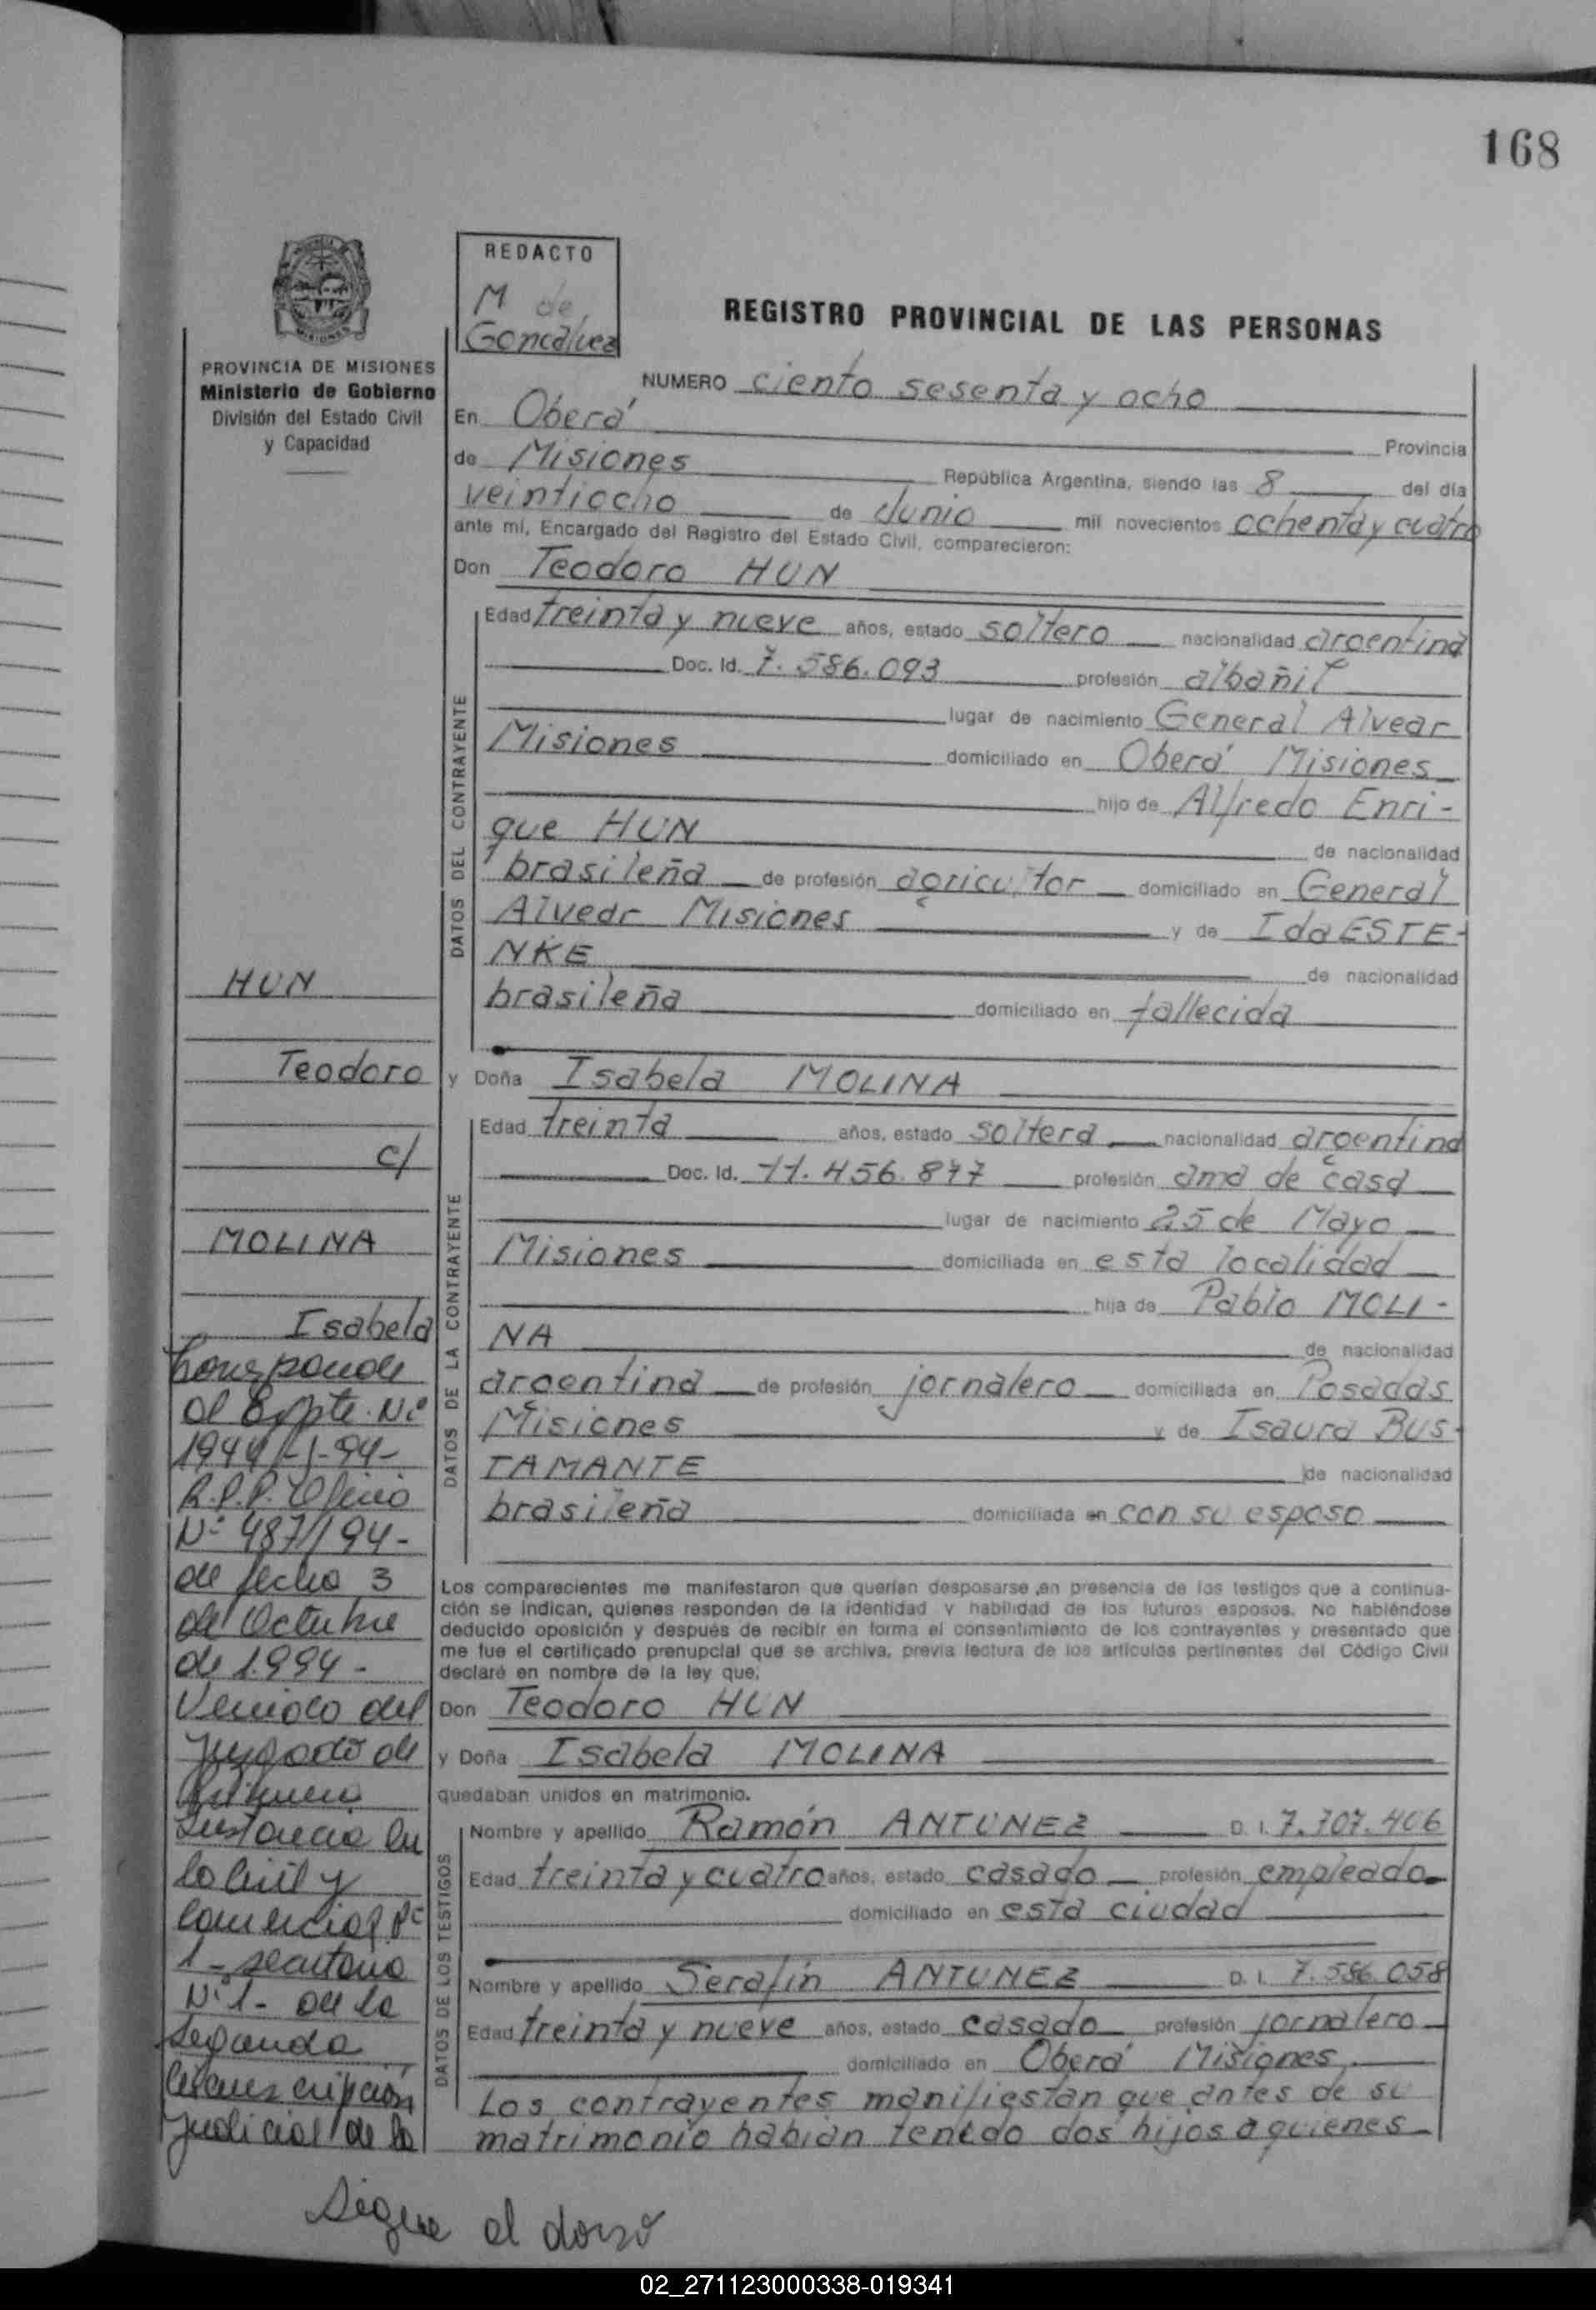 168
REDACTO
M de
Goncalvez
REGISTRO PROVINCIAL DE LAS PERSONAS
PROVINCIA DE MISIONES
Ministerio de Gobierno
División del Estado Civil
y Capacidad
NUMERO ciento sesenta y ocho
En Oberá Provincia
de Misiones República Argentina, siendo las 8 del día
veintiocho de Junio mil novecientos ochenta y cuatro
ante mí, Encargado del Registro del Estado Civil, comparecieron:
Don Teodoro HUN
DATOS DEL CONTRAYENTE
Edad treinta y nueve años, estado soltero nacionalidad argentina
Doc. Id. 7.586.093 profesión albañil
lugar de nacimiento General Alvear
Misiones domiciliado en Oberá Misiones
hijo de Alfredo Enri-
que HUN de nacionalidad
brasileña de profesión agricultor domiciliado en General
Alvear Misiones y de Ida ESTE-
NKE de nacionalidad
brasileña domiciliado en fallecida
y Doña Isabela MOLINA
DATOS DE LA CONTRAYENTE
Edad treinta años, estado soltera nacionalidad argentina
Doc. Id. 11.456.877 profesión ama de casa
lugar de nacimiento 25 de Mayo
Misiones domiciliada en esta localidad
hija de Pablo MOLI-
NA de nacionalidad
argentina de profesión jornalero domiciliada en Posadas
Misiones y de Isaura BUS-
TAMANTE de nacionalidad
brasileña domiciliada en con su esposo
Los comparecientes me manifestaron que querían desposarse en presencia de los testigos que a continua-
ción se indican, quienes responden de la identidad y habilidad de los futuros esposos. No habiéndose
deducido oposición y después de recibir en forma el consentimiento de los contrayentes y presentado que
me fue el certificado prenupcial que se archiva, previa lectura de los artículos pertinentes del Código Civil
declaré en nombre de la ley que:
Don Teodoro HUN
y Doña Isabela MOLINA
quedaban unidos en matrimonio.
DATOS DE LOS TESTIGOS
Nombre y apellido Ramón ANTUNEZ D. I. 7.707.406
Edad treinta y cuatro años, estado casado profesión empleado
domiciliado en esta ciudad
Nombre y apellido Serafín ANTUNEZ D. I. 7.586.058
Edad treinta y nueve años, estado casado profesión jornalero
domiciliado en Oberá Misiones
Los contrayentes manifiestan que antes de su
matrimonio habían tenido dos hijos a quienes
HUN
Teodoro
c/
MOLINA
Isabela
Corresponde
al Expte. Nº
1944-J-94-
R.P.P. Oficio
Nº 487/94-
de fecha 3
de Octubre
de 1.994-
Venido del
Juzgado de
Primera
Instancia en
lo Civil y
Comercial Nº
1- secretaria
Nº 1- de la
Segunda
Circunscripción
Judicial de la
Sigue al dorso
02_271123000338-019341